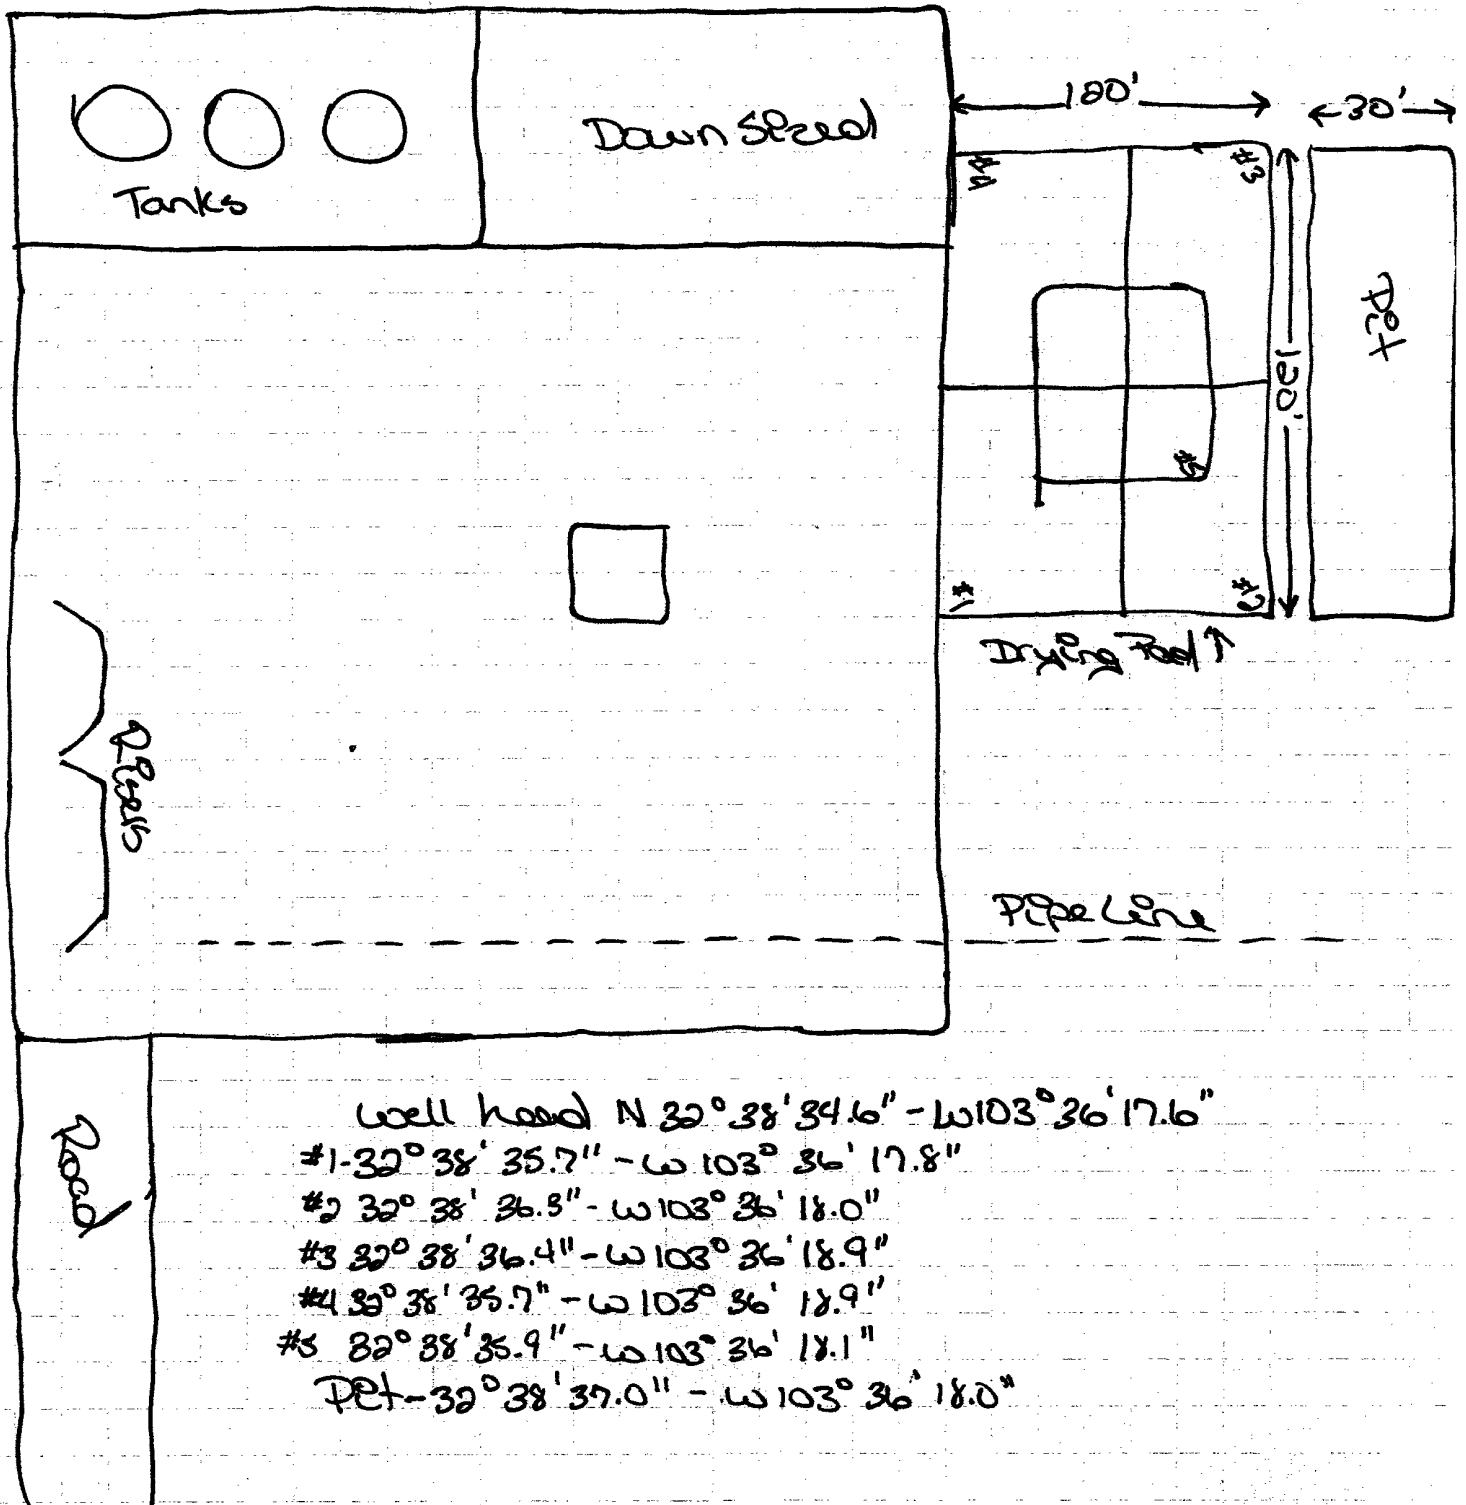 100'
30'
Down Sized
Tanks
#4
#3
Pit
100'
#5
#1
#2
Drying Pad ↑
Risers
Pipe Line
Road
well head N 32° 38' 34.6" - W103° 36' 17.6"
#1-32° 38' 35.7" - W 103° 36' 17.8"
#2 32° 38' 36.3" - W103° 36' 18.0"
#3 32° 38' 36.4" - W 103° 36' 18.9"
#4 32° 38' 35.7" - W 103° 36' 18.9"
#5 32° 38' 35.9" - W 103° 36' 18.1"
Pit-32° 38' 37.0" - W 103° 36' 18.0"